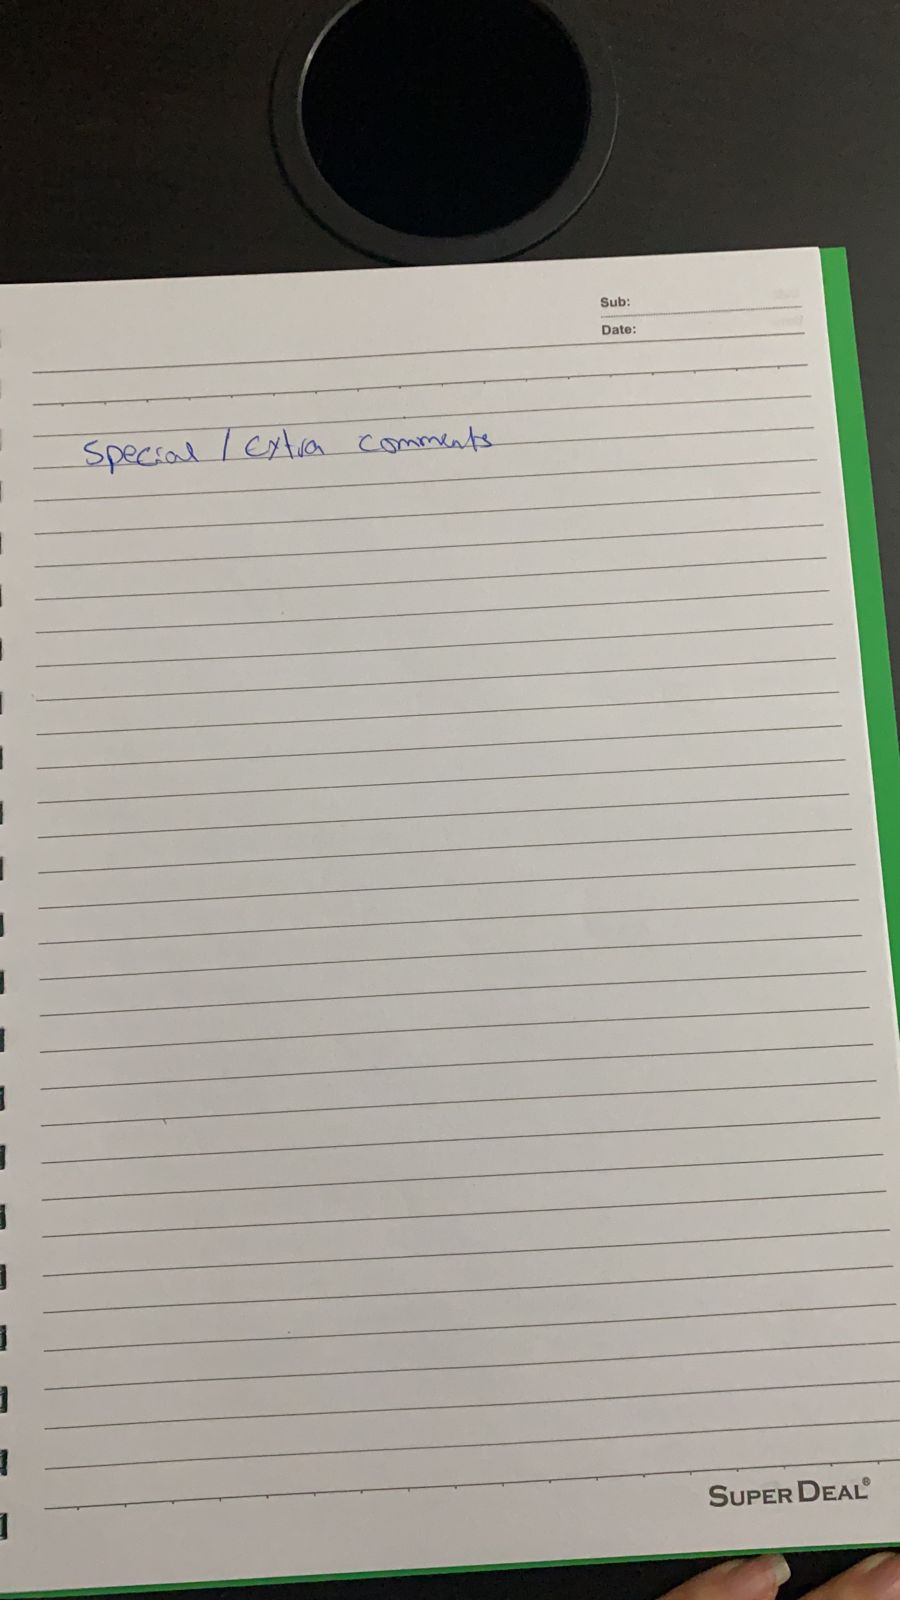 Sub:
Date:
Special / Extra comments
SUPER DEAL®